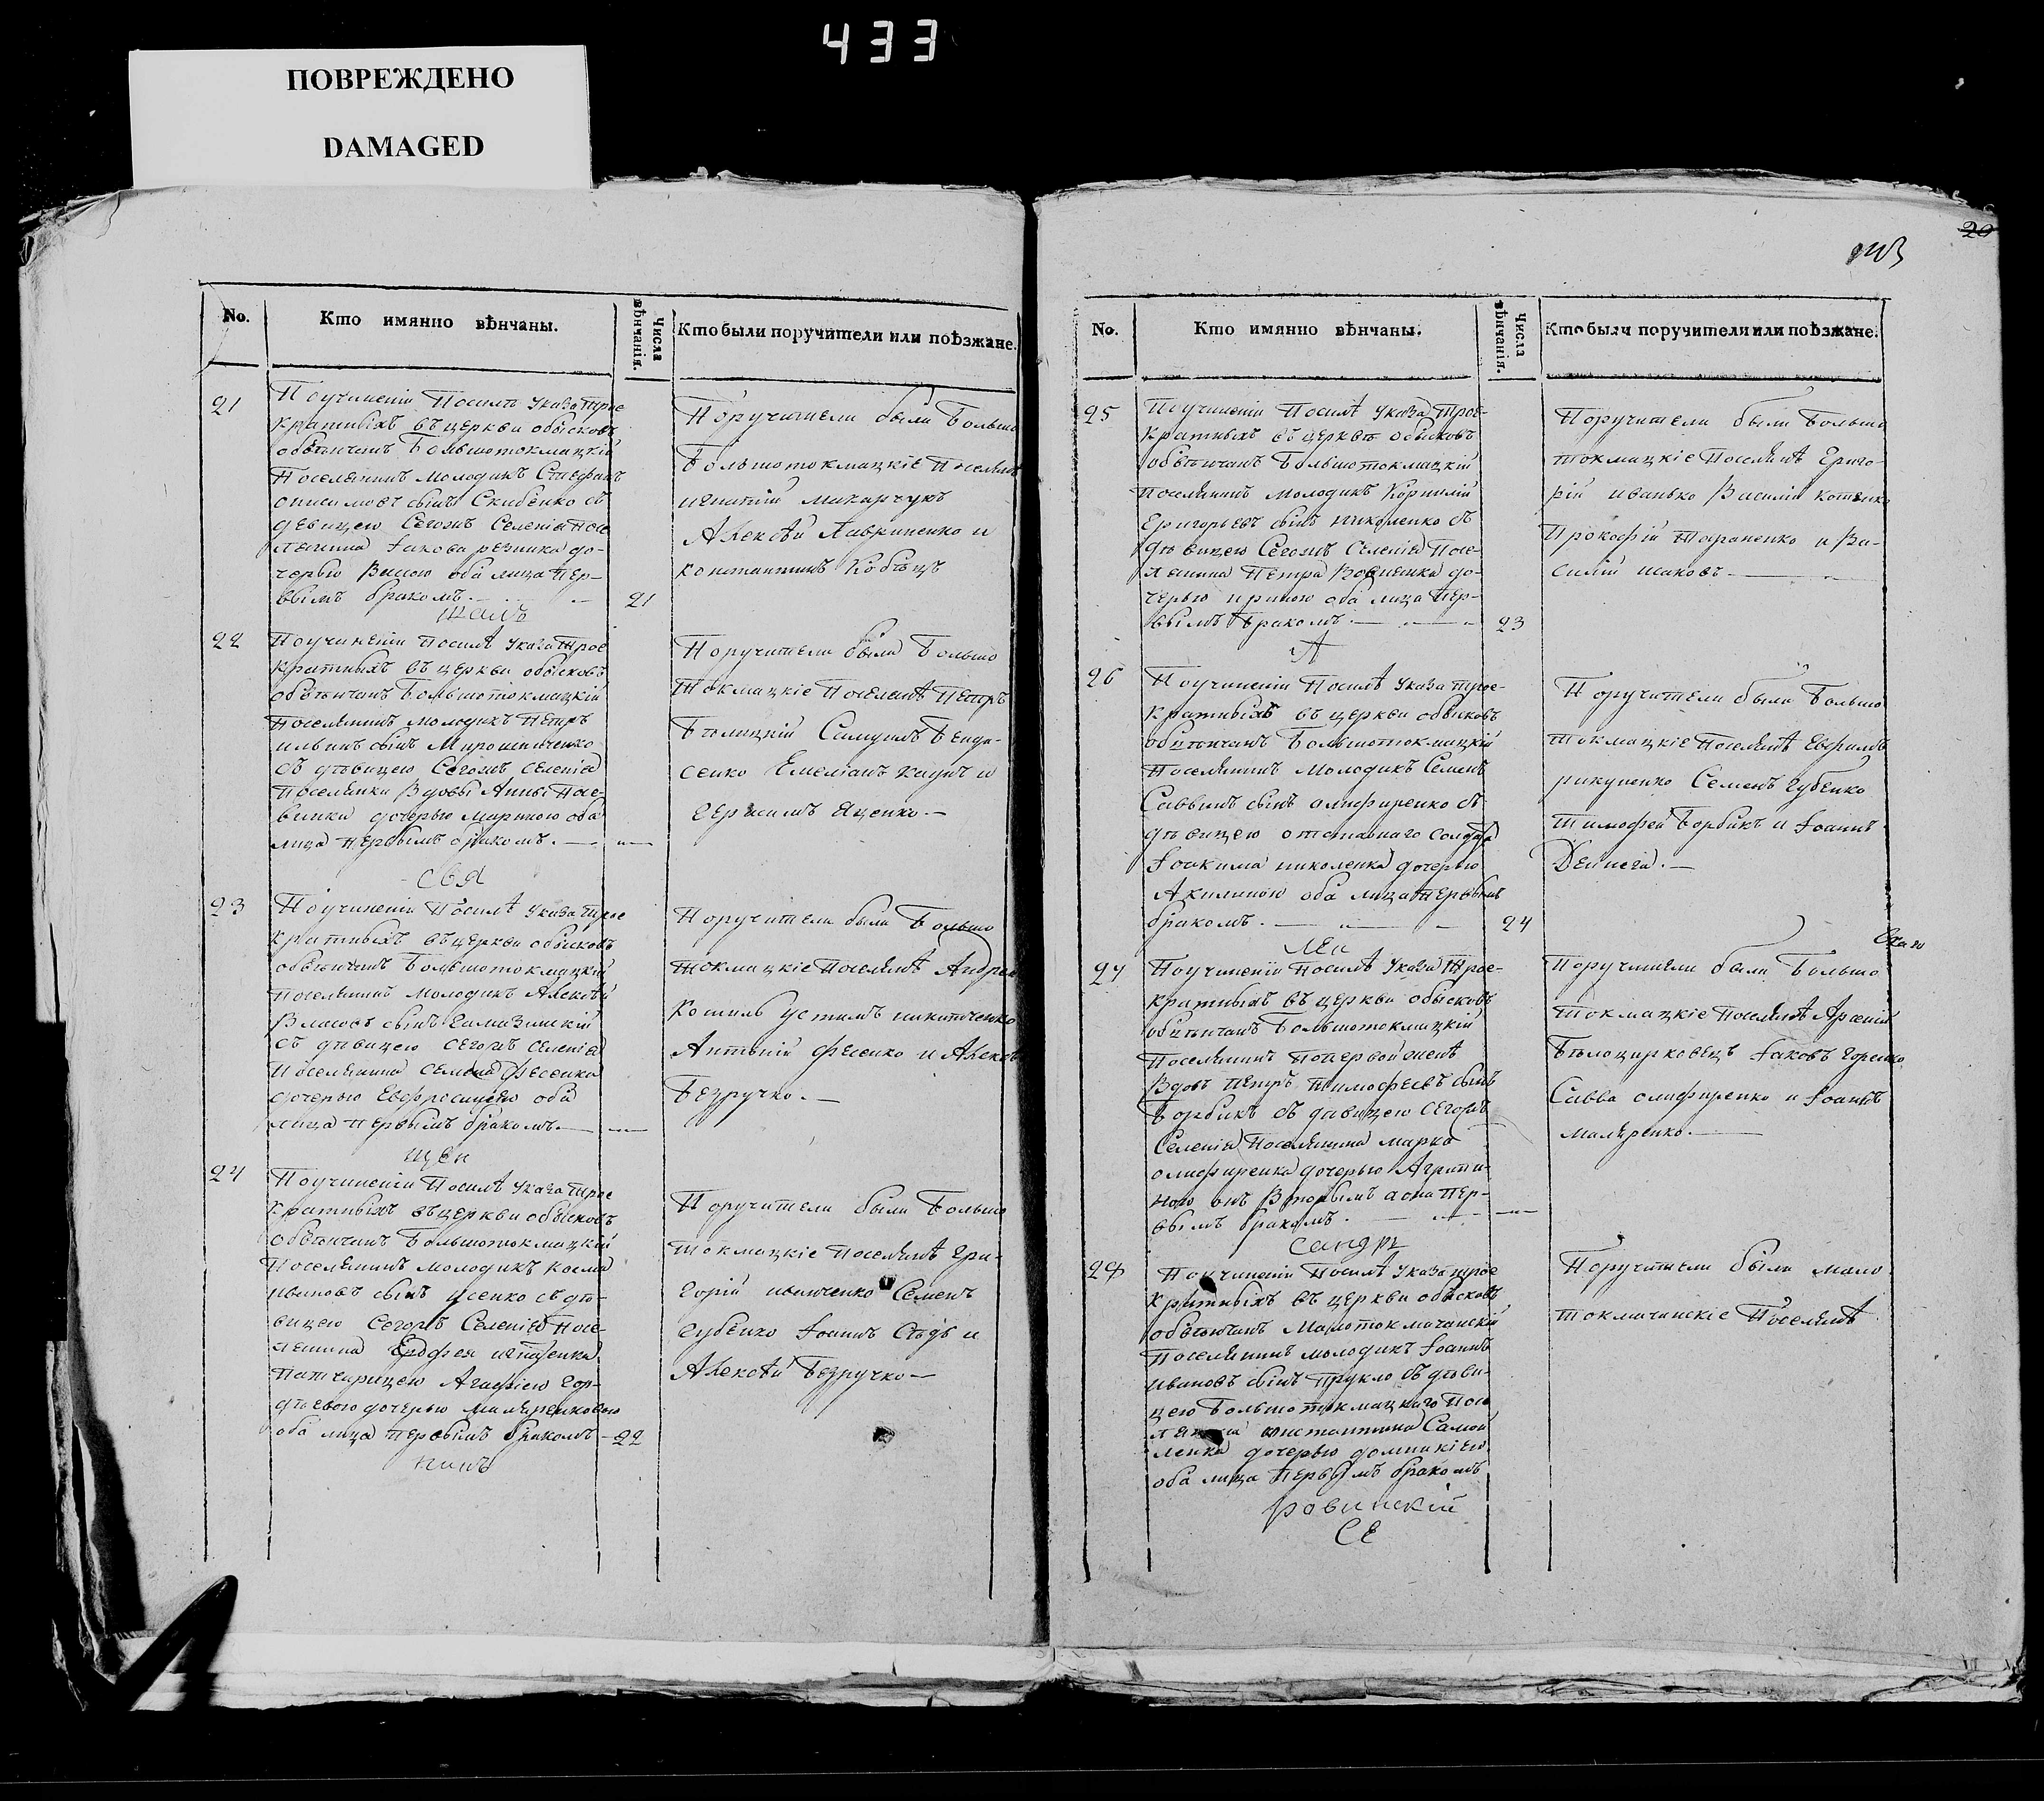 433
ПОВРЕЖДЕНО
DAMAGED
No.
Кто имянно вѣнчаны.
Числа вѣнчанія.
Кто были поручители или поѣзжане.
21
Поучиненіи Посилѣ Указа Трое
кратныхъ въ церкви обысковъ
обвѣнчанъ Большотокмацкій
Поселянинъ молодикъ Стефанъ
сынъ Скибенко съ
девицею Сегожъ Селенія Посе
лянина Іакова резника до-
черью оба лица Пер-
вымъ бракомъ.
21
Поручители были Большо
Большотокмацкіе Поселянѣ
игнатій макарчукъ
Алексѣй Лавриненко и
константинъ Кобецъ
22
Поучиненіи Посилѣ Указа Трое
кратныхъ въ церкви обысковъ
обвѣнчанъ Большотокмацкій
Поселянинъ молодикъ Петръ
ильинъ сынъ Мирошниченко
съ дѣвицею Сегожъ селенія
Поселянки Вдовы Анны
дочерью Мариною оба
лица первымъ бракомъ.
Поручители были Большо
Токмацкіе Поселянѣ Петръ
Белицкій Самуилъ
Емеліанъ и
Герасимъ Яценко.
СвЯ
23
Поучиненіи Посилѣ Указа Трое
кратныхъ въ церкви обысковъ
обвѣнчанъ Большотокмацкій
Поселянинъ молодикъ Алексѣй
Власовъ сынъ
съ дѣвицею сегожъ селенія
Поселянина семена Фесенка
дочерью Евфросиніею оба
лица Первымъ бракомъ.
Поручители были Большо
токмацкіе Поселянѣ Андрей
Кошиль устимъ никитченко
Антоній фесенко и Алексѣй
Безручко.
щен
24
Поучиненіи Посилѣ Указа Трое
кратныхъ въ церкви обысковъ
обвѣнчанъ Большотокмацкій
Поселянинъ молодикъ косма
ивановъ сынъ усенко съ дѣ-
вицею Сегожъ Селенія Посе-
лянина Ерофея
Патчерицею Агафіею Гор-
дѣевою дочерью маляренковою
оба лица первымъ бракомъ
22
никъ
Поручители были Большо
токмацкіе поселянѣ Гри-
горій иванченко Семенъ
губенко Іоаннъ и
Алексѣй Безручко
No.
Кто имянно вѣнчаны.
Числа вѣнчанія.
Кто были поручители или поѣзжане.
25
Поучиненіи Посилѣ Указа Трое-
кратныхъ въ церквѣ обысковъ
обвѣнчанъ Большотокмацкій
поселянинъ Молодикъ Корнилій
Григорьевъ сынъ николенко съ
дѣвицею Сегожъ Селенія Посе-
лянина Петра до-
черью ириною оба лица Пер-
вымъ бракомъ.
23
Поручители были Большо
токмацкіе Поселянѣ Григо-
рій иванько Василій котенко
Прокофій Тараненко и Ва-
силій шаховъ
А
26
Поучиненіи Посилѣ Указа трое-
кратныхъ въ церкви обысковъ
обвѣнчанъ Большотокмацкій
Поселянинъ Молодикъ Семенъ
Саввинъ сынъ олифиренко съ
дѣвицею отставнаго Солдата
Іоакима николенка дочерью
Акилиною оба лица первымъ
бракомъ.
24
Поручители были Большо
токмацкіе Поселянѣ Ефремъ
рикуненко Семенъ губенко
Тимофей Борбикъ и Іоаннъ
Дейнега.
лен
27
Поучиненіи Посилѣ Указа Трое-
кратныхъ въ церкви обысковъ
обвѣнчанъ Большотокмацкій
Поселянинъ Попервой женѣ
Вдовъ Петръ Тимофеевъ сынъ
Борбикъ съ дѣвицею Сегожъ
Селенія Поселянина марка
олифиренка дочерью Агрипи-
ною онъ Вторымъ а она Пер-
вымъ бракомъ.
Поручители были Большо
токмацкіе поселянѣ Арсеній
Бѣлоцирковецъ Іаковъ Горенко
Савва олифиренко и Іоаннъ
Маляренко.
сандръ
28
Поучиненіи Посилѣ Указа трое
кратныхъ въ церкви обысковъ
обвѣнчанъ Малотокмачанскій
Поселянинъ молодикъ Іоаннъ
ивановъ сынъ Прукло съ дѣви-
цею Большотокмацкаго Посе
лянина константина Самой
ленка дочерью домникіею
оба лица Первымъ бракомъ
Поручители были мало
токмачанскіе Поселянѣ
ровинскій
СЕ